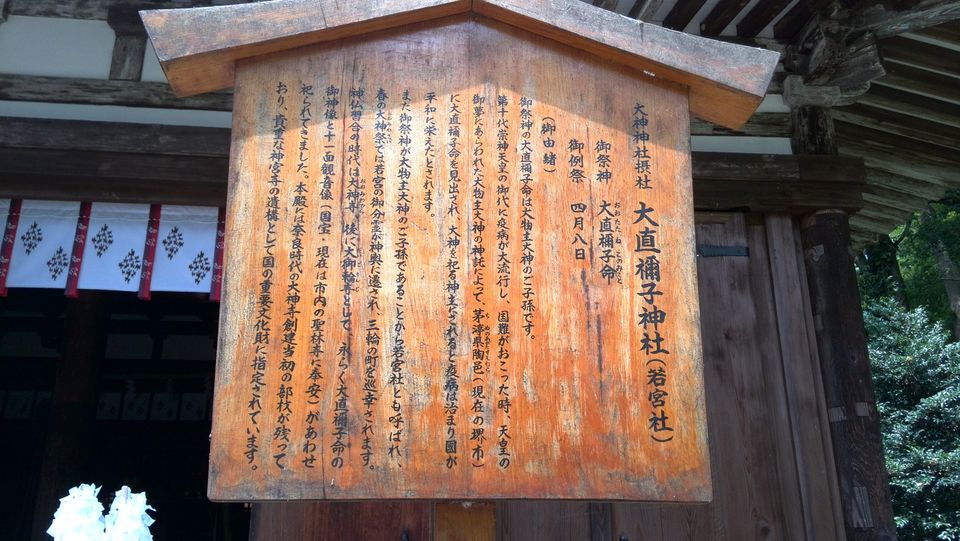 大神神社摂社 大直禰子神社(若宮社)
御祭神 大直禰子命
おおたたねこのみこと
御例祭 四月八日
(御由緒)
御祭神の大直禰子命は大物主大神のご子孫です。
第十代崇神天皇の御代に疫病が大流行し、国難がおこった時、天皇の
御夢にあらわれた大物主大神の神託によって、茅渟県陶邑(現在の堺市)
に大直禰子命を見出され、大神を祀る神主にされると疫病は治まり国が
平和に栄えたとされます。
また御祭神が大物主大神のご子孫であることから若宮社とも呼ばれ、
春の大神祭では若宮の御分霊が神輿に遷され、三輪の町を巡幸されます。
神仏習合の時代は大神寺、後に大御輪寺として、永らく大直禰子命の
御神像と十一面観音像(国宝 現在は市内の聖林寺に奉安)があわせ
祀られてきました。本殿には奈良時代の大神寺創建当初の部材が残って
おり、貴重な神宮寺の遺構として国の重要文化財に指定されています。